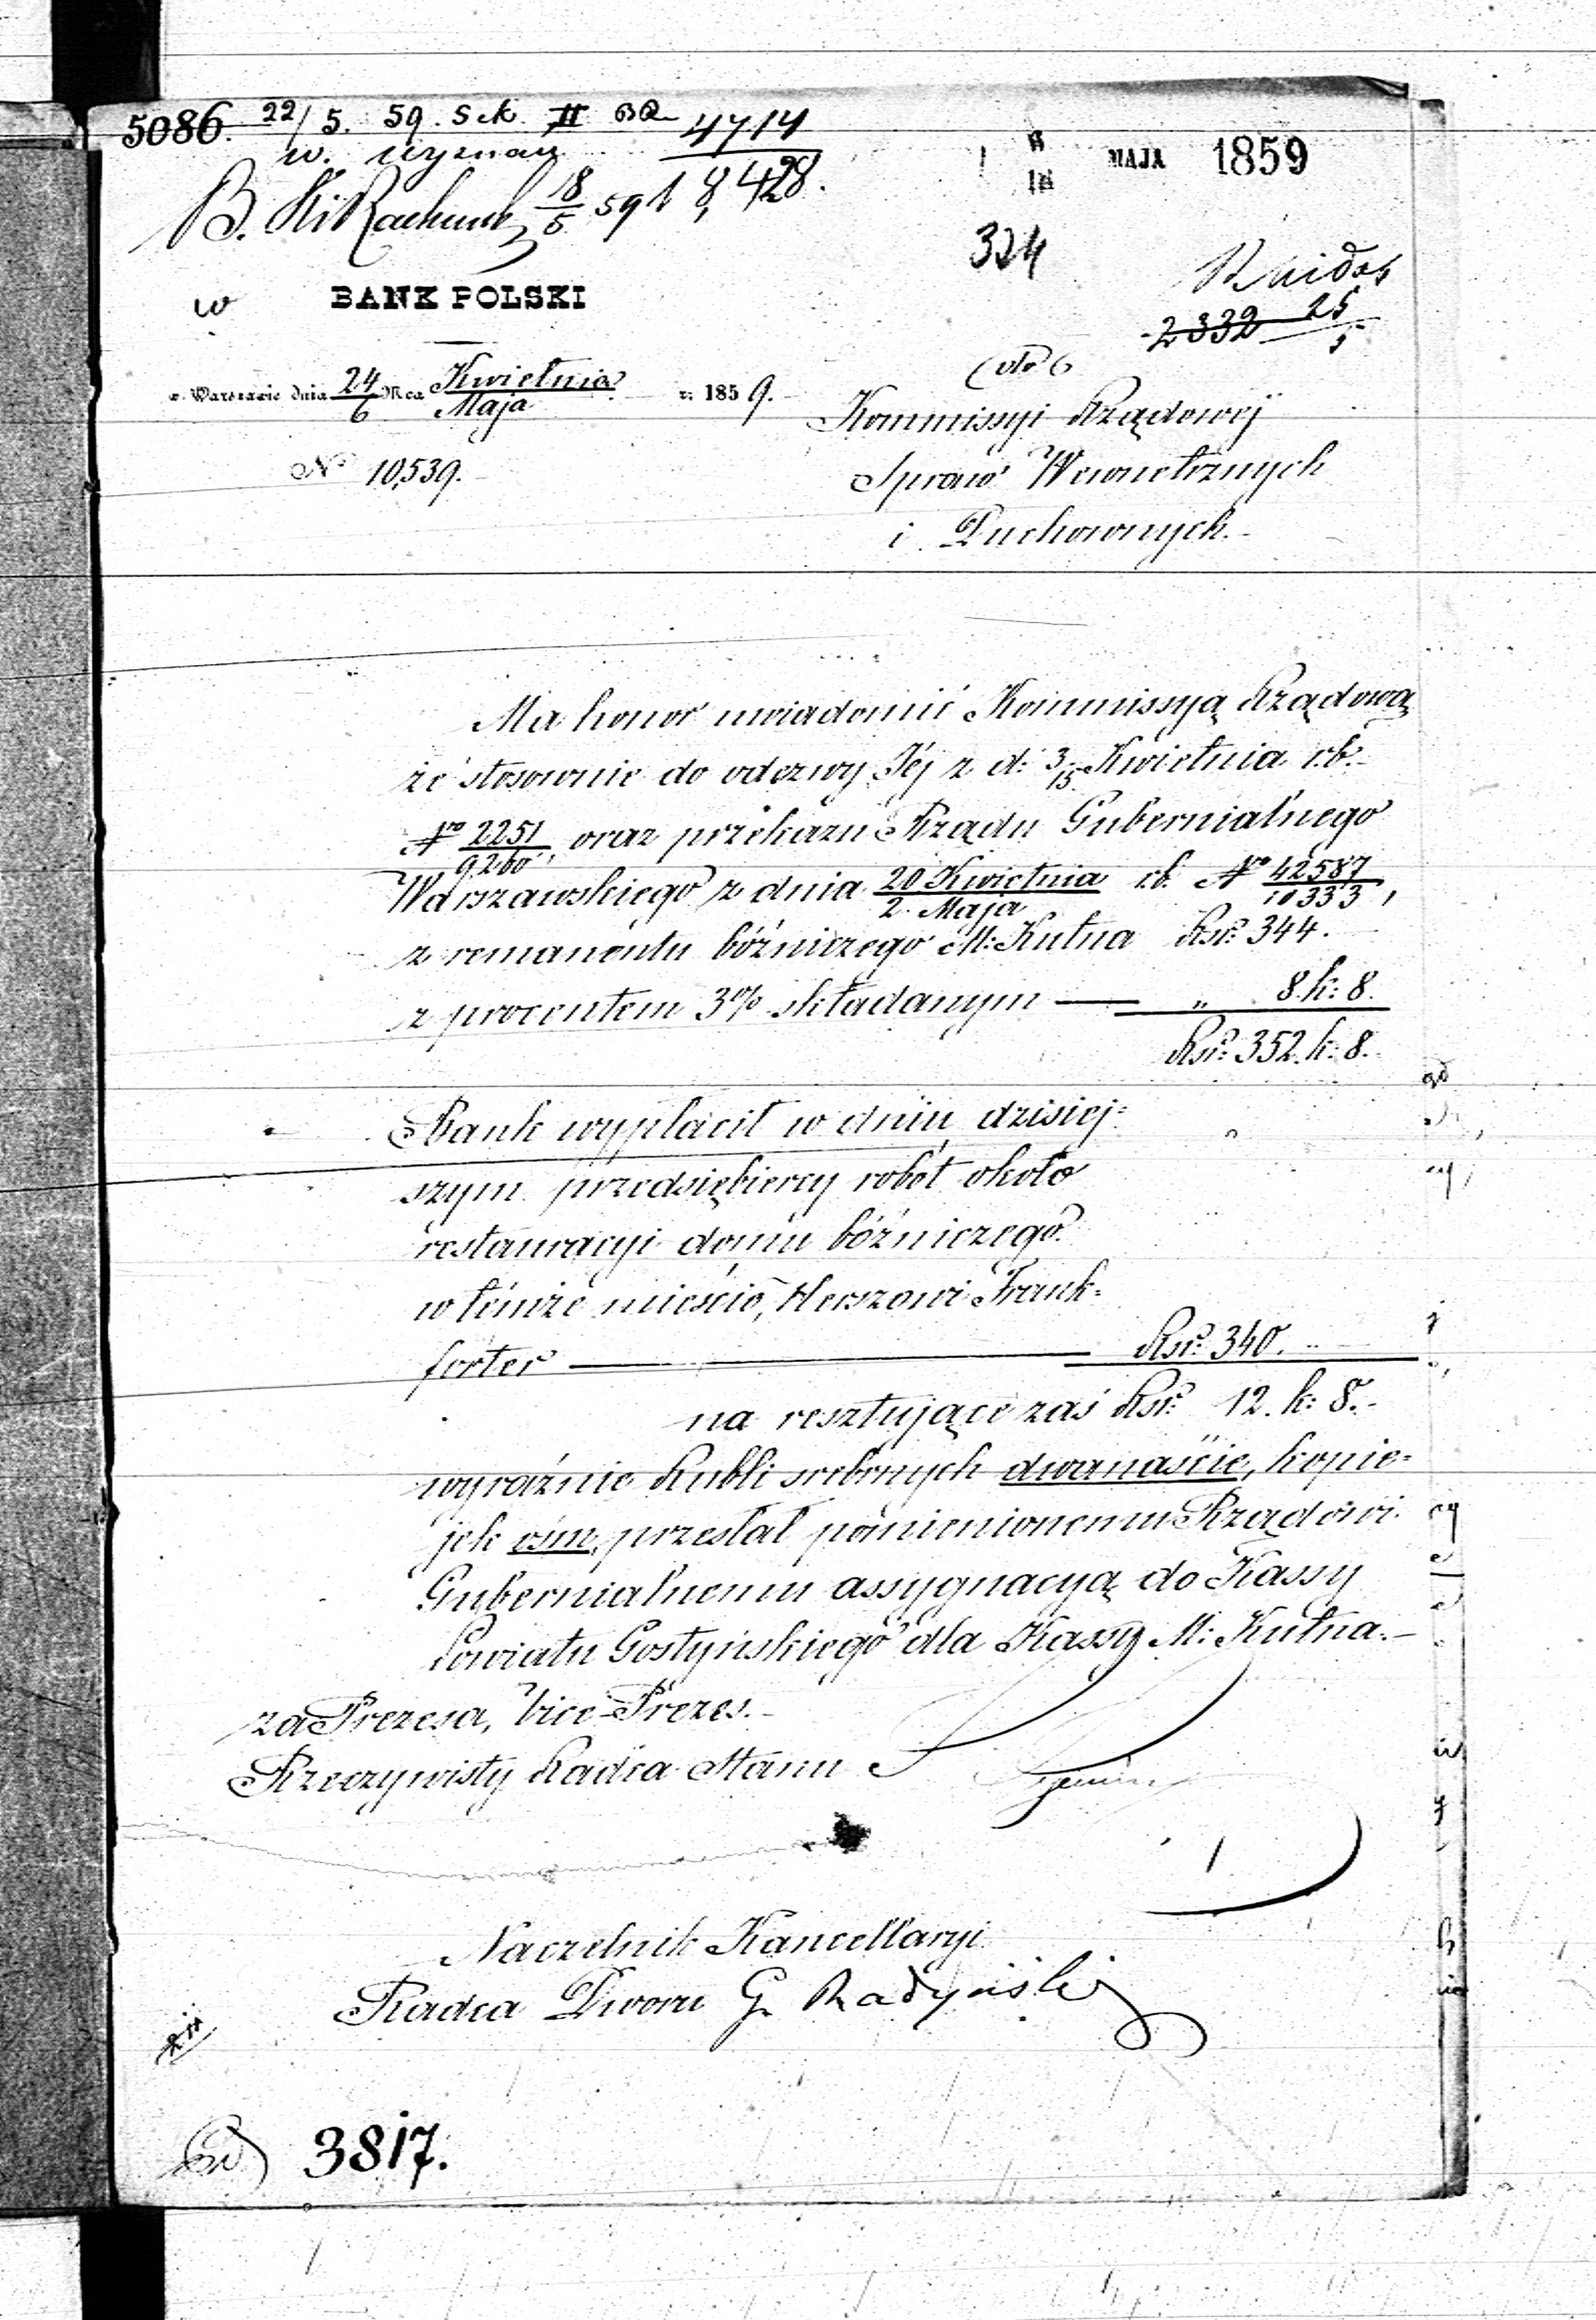 5086. 22/5. 59. Sek. II 4714
w. wyznań 8,428.
B. 18/5 59
6/18 MAJA 1859
324
2332 25/5
w
BANK POLSKI
w Warszawie dnia 24/6 M-ca Kwietnia/Maja r: 1859.
No 10,539.
Kommissyi Rządowej
Spraw Wewnetrznych
i Duchownych.
Ma honor uwiadomić Kommissyą Rządową
że stosownie do odezwy Jéj z d: 3/15 Kwietnia r.b.
No 2251/9260, oraz przekazu Rządu Gubernialnego
Warszawskiego z dnia 20 Kwietnia/2. Maja r.b. No 42587/10333,
z remanentu bóżniczego M: Kutna Rsr: 344.
z procentem 3% składanym — „ 8. k: 8.
Rsr: 352. k: 8.
Bank wypłacił w dniu dzisiej=
szym przedsiębiercy robót około
restauracyi domu bóżniczego
w témże mieście, Herszowi Frank=
forter — Rsr: 340.
na resztujące zaś Rsr: 12. k: 8.
wyraźnie Rubli srebrnych dwanaście, kopie=
jek ośm, przesłał pomienionemu Rządowi
Gubernialnemu assygnacyą do Kassy
Powiatu Gostyńskiego dla Kassy M: Kutna.
za Prezesa, Vice-Prezes.
Rzeczywisty Radca Stanu
Naczelnik Kancellaryi
Radca Dworu G. Radyński
3817.